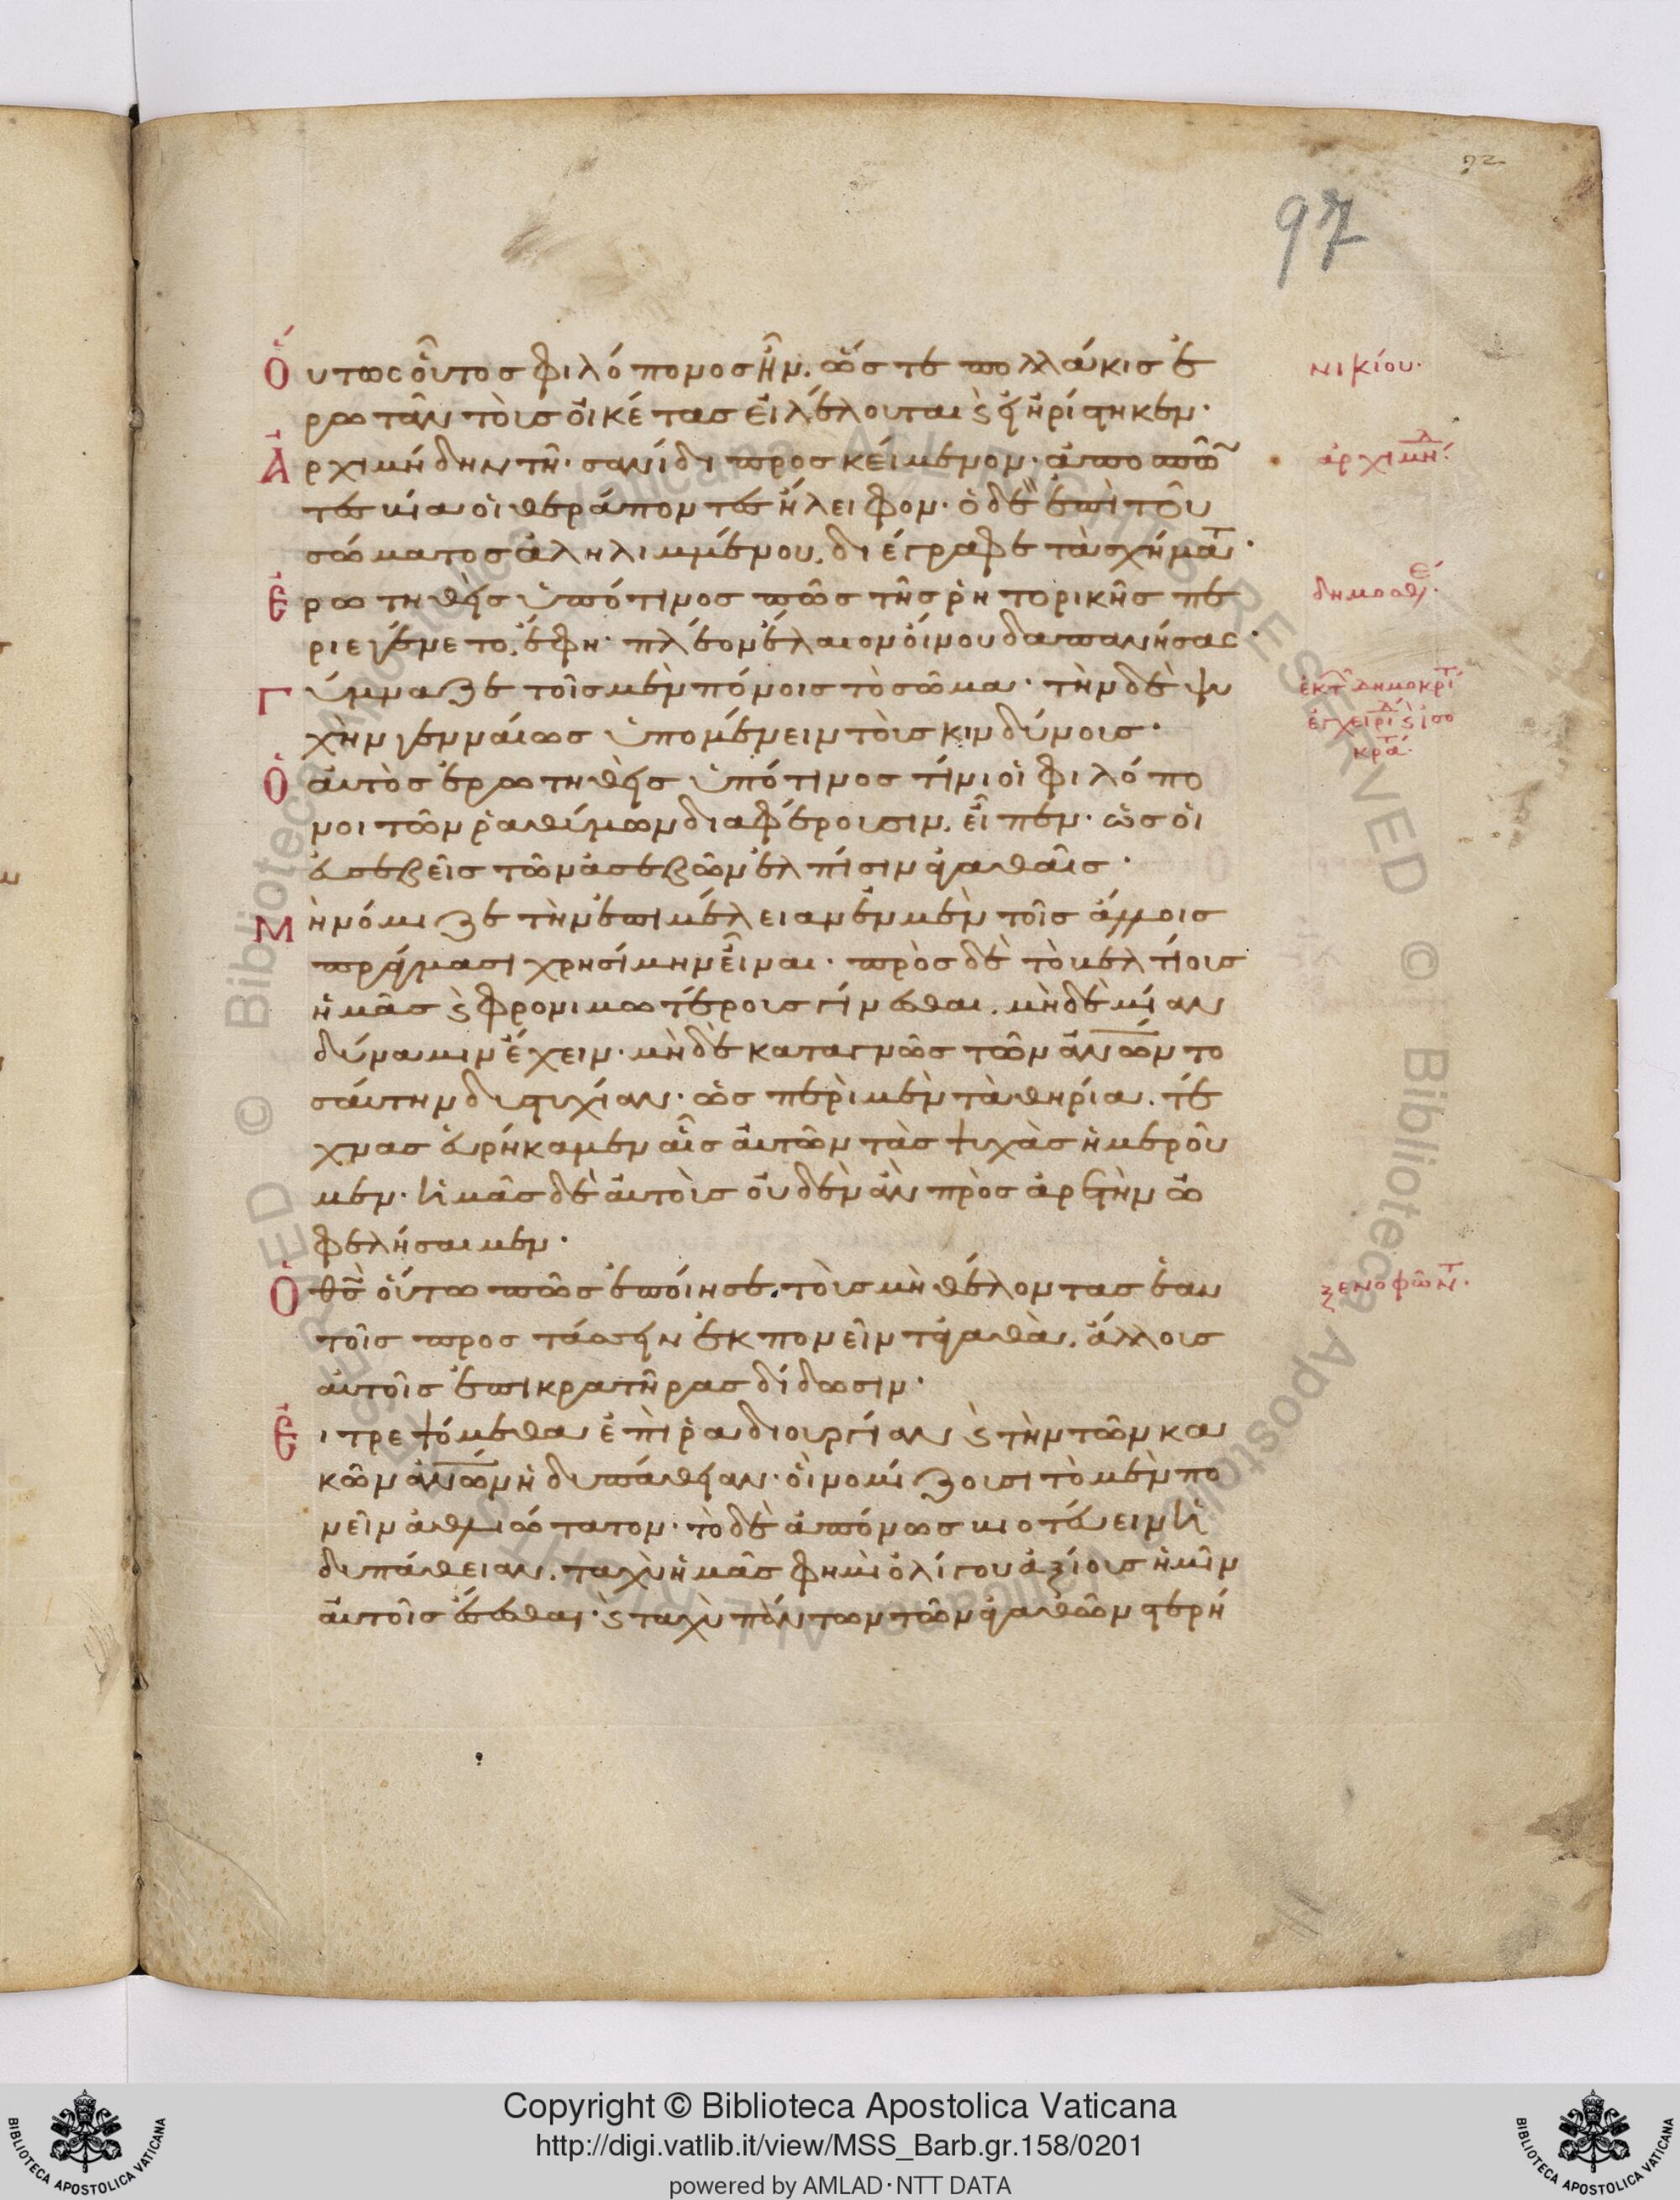 92
97
Οὕτως οὗτος φιλόπονος ἦν, ὥστε πολλάκις ἐ
ρωτᾶν τοὺς οἰκέτας εἰ λέλουται ϗ εἰ ἠρίστηκεν·
νικίου·
Ἀρχιμήδην τῆ σανίδι προσκείμενον· ἀποσπῶν
τες βίαι οἱ θεράποντες ἤλειφον· ὁ δὲ ἐπὶ τοῦ
σώματος ἀληλιμμένου, διέγραφε τὰ σχήματ·
ἀρχιμήδ·
Ἐρωτηθεὶς ὑπό τινος πῶς τῆς ῥητορικῆς πε
ριεγένετο, ἔφη· πλέον ἔλαιον οἴνου δαπανήσας·
δημοσθέ·
Γύμναζε τοῖς μὲν πόνοις τὸ σῶμα· τὴν δὲ ψυ
χὴν γενναίως ὑπομένειν τοὺς κινδύνους·
ἐκ τ δημοκρίτ
ἐγχειριδ ϗ ἰσο
κράτ·
Ὁ αὐτὸς ἐρωτηθεὶς ὑπό τινος τίνι οἱ φιλόπο
νοι τῶν ῥαθύμων διαφέρουσιν, εἶπεν· ὡς οἱ
εὐσεβεῖς τῶν ἀσεβῶν ἐλπίσιν ἀγαθαῖς·
Μὴ νόμιζε τὴν ἐπιμέλειαν ἐν μὲν τοῖς ἄλλοις
πράγμασι χρησίμην εἶναι· πρὸς δὲ τὸ βελτίους
ἡμᾶς ϗ φρονιμωτέρους γίνεσθαι, μηδεμίαν
δύναμιν ἔχειν· μὴ δὲ καταγνῶς τῶν ἀνων το
σαύτην δυστυχίαν· ὡς περὶ μὲν τὰ θηρία, τέ
χνας εὑρήκαμεν αἷς αὐτῶν τὰς ψυχὰς ἡμεροῦ
μεν· ἡμᾶς δὲ αὐτοὺς οὐδὲν ἂν πρὸς ἀρετὴν ὠ
φελήσαιμεν·
Ὁ θσ οὕτω πως ἐποίησε, τοὺς μὴ θέλοντας ἑαυ
τοῖς προστάσσειν ἐκπονεῖν τἀγαθὰ, ἄλλους
αὐτοῖς ἐπικρατῆρας δίδωσιν·
ξενοφῶντ·
Εἰ τρεψόμεθα ἐπὶ ῥαδιουργίαν ϗ τὴν τῶν κα
κῶν ἀνων ἡδυπάθειαν· οἳ νομίζουσι τὸ μὲν πο
νεῖν ἀθλιώτατον· τὸ δὲ ἀπόνως βιοτεύειν ἡ
δυπάθειαν, ταχὺ ἡμᾶς φημὶ ὀλίγου ἀξίους ἡμῖν
αὐτοῖς ἔσεσθαι· ϗ ταχὺ πάντων τῶν ἀγαθῶν στερή
Copyright © Biblioteca Apostolica Vaticana
http://digi.vatlib.it/view/MSS_Barb.gr.158/0201
powered by AMLAD·NTT DATA
BIBLIOTECA APOSTOLICA VATICANA
BIBLIOTECA APOSTOLICA VATICANA